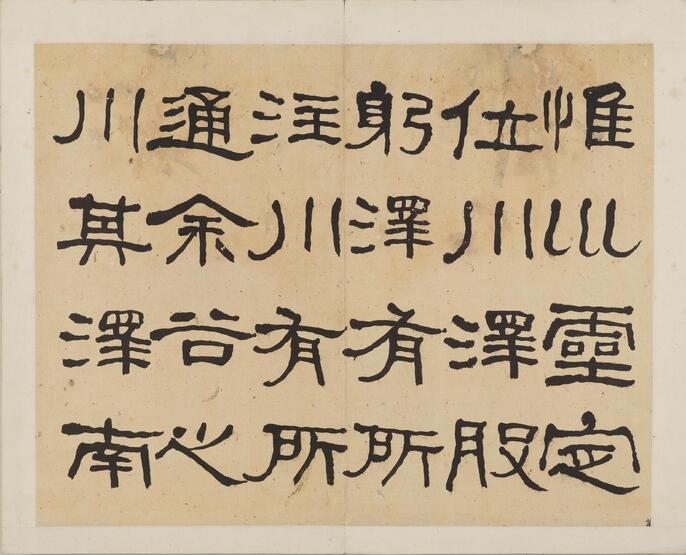 惟巛靈定
位川澤股
躬澤有所
注川有所
通余谷之
川其澤南